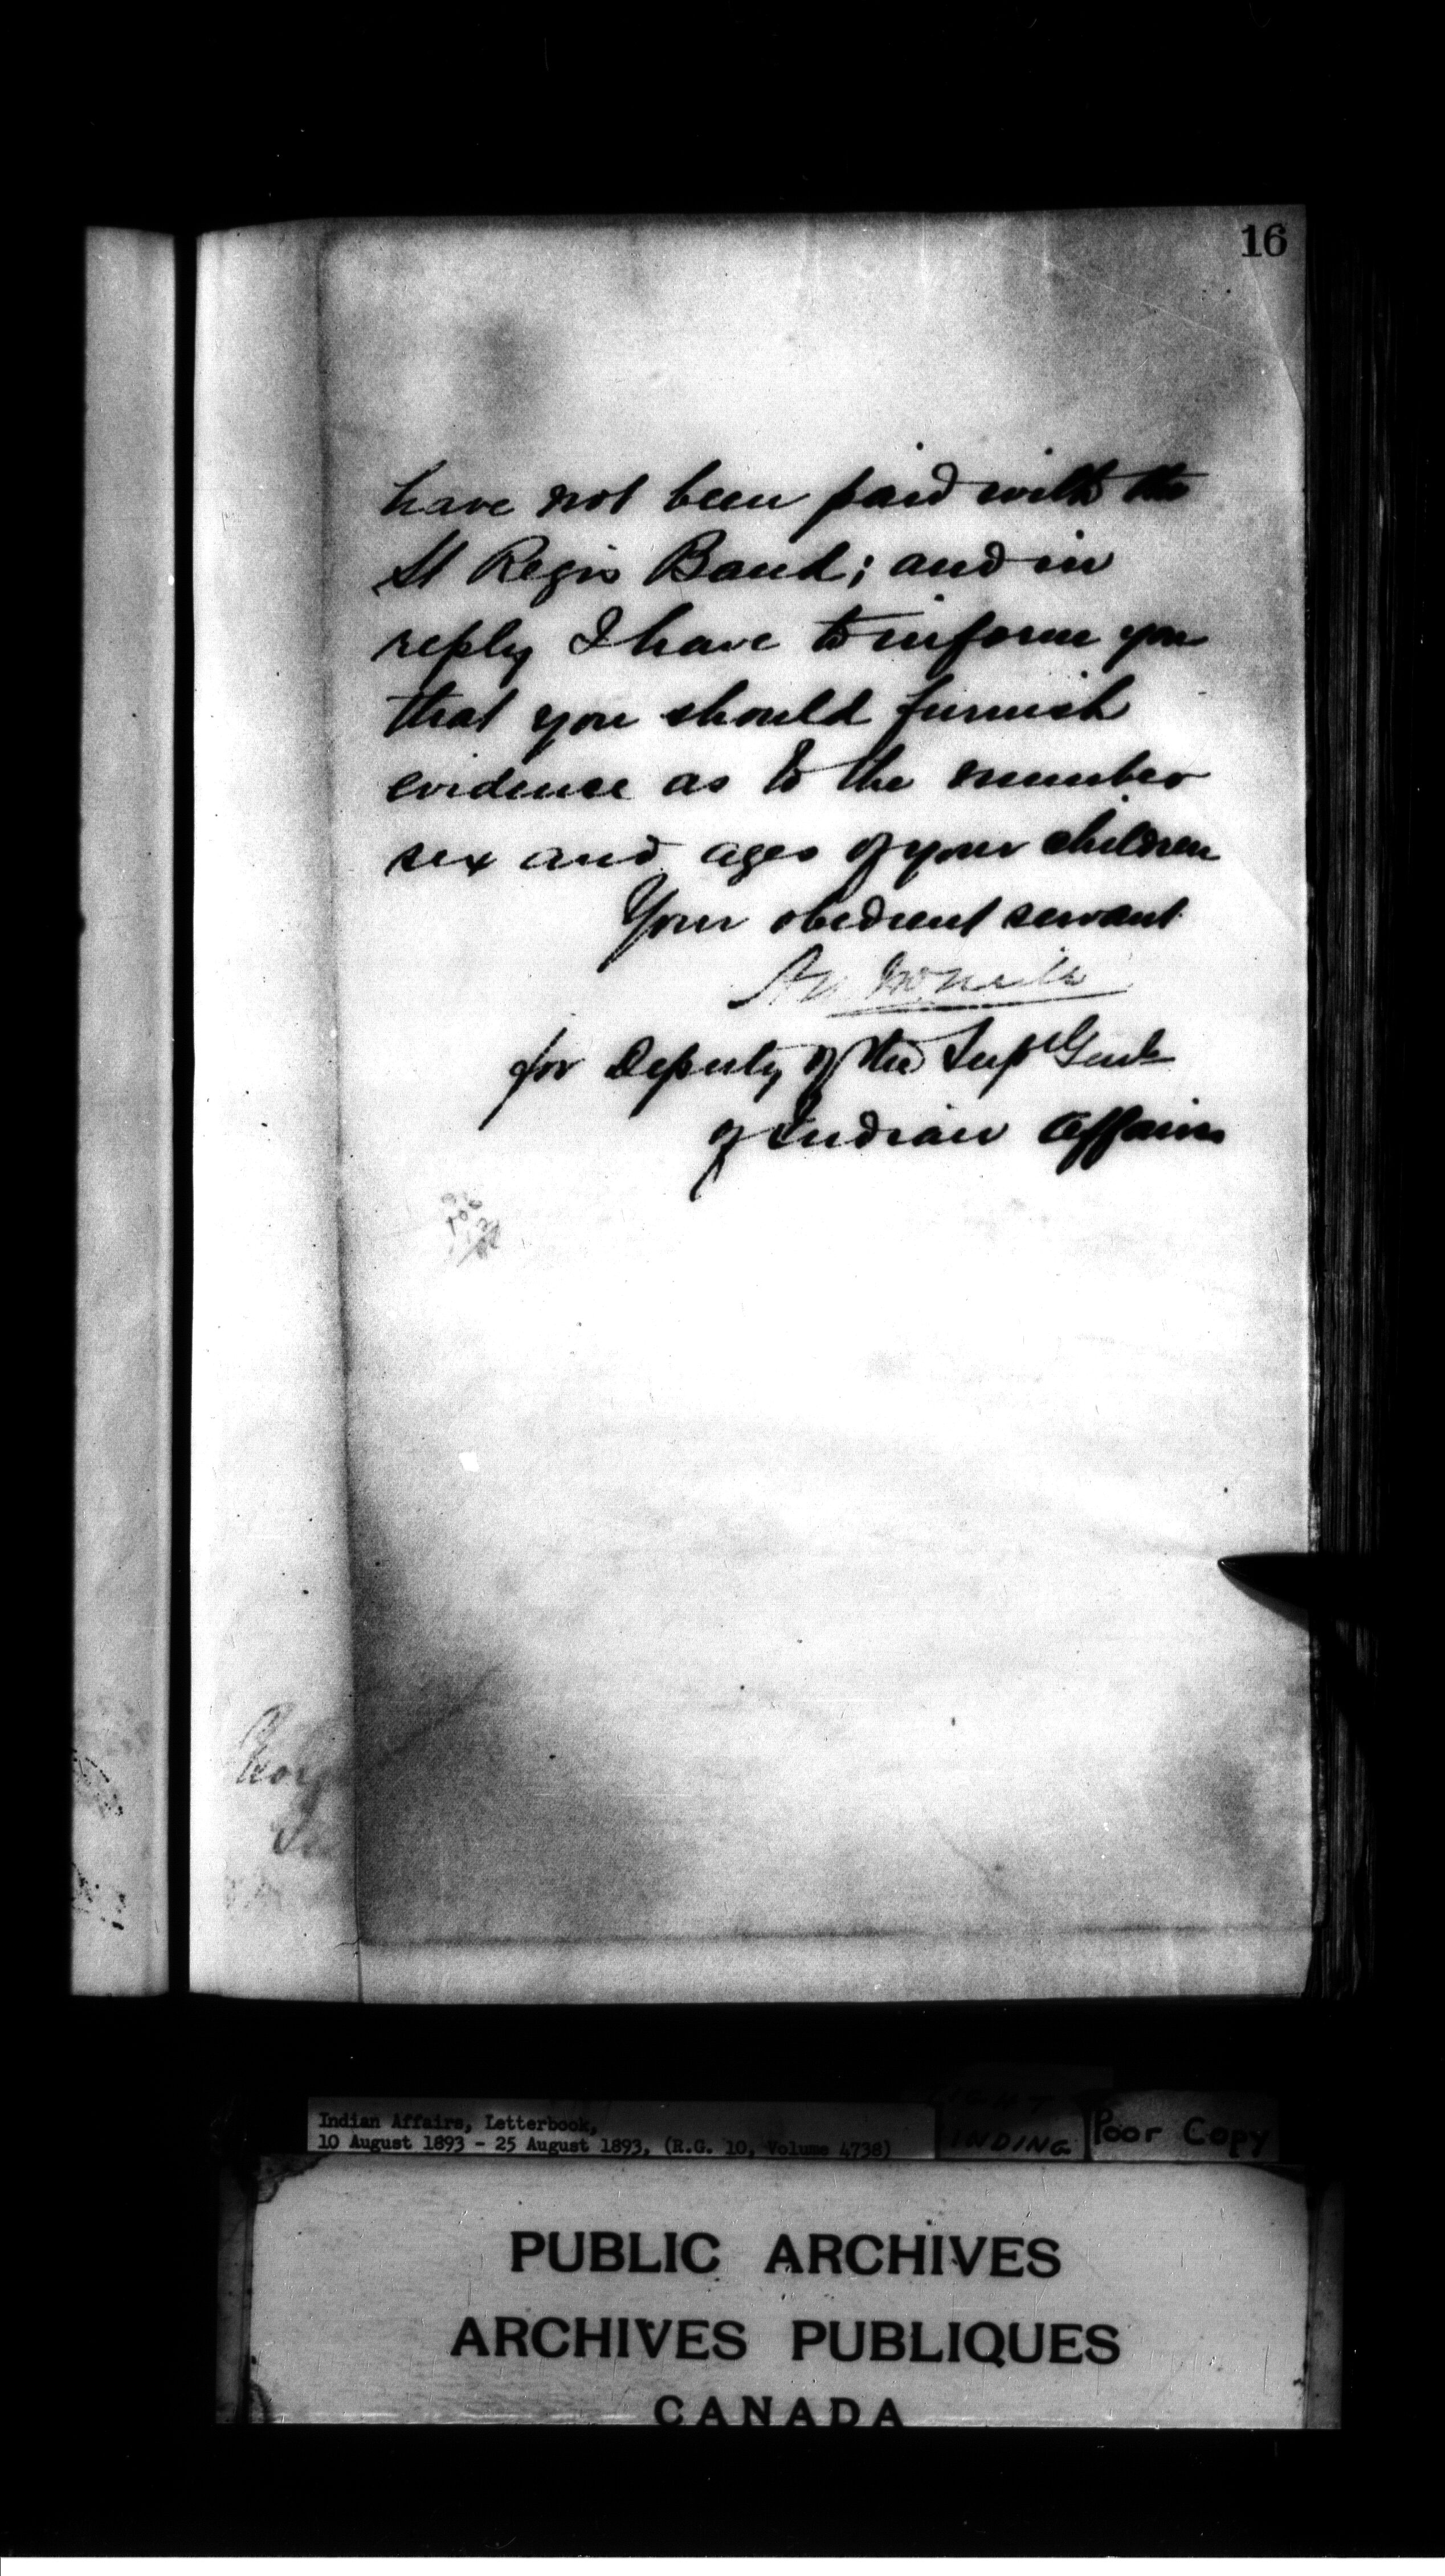 16
have not been paid with the
St Regis Band; and in
reply I have to inform you
that you should furnish
evidence as to the number
sex and ages of your children
Your obedient servant
for Deputy of the Supt Genl
of Indian Affairs
Indian Affairs, Letterbook,
10 August 1893 - 25 August 1893, (R.G. 10, Volume 4738)
Poor Copy
PUBLIC ARCHIVES
ARCHIVES PUBLIQUES
CANADA